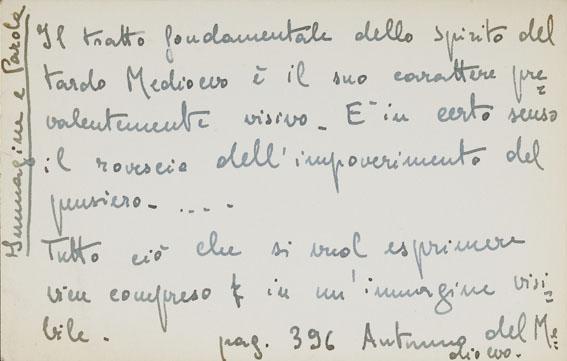 Immagine e Parola
Il tratto fondamentale dello spirito del
tardo Medioevo è il suo carattere pre=
valentemente visivo - E' in certo senso
il rovescio dell'impoverimento del
pensiero - ....
Tutto ciò che si vuol esprimere
vien compreso in un'immagine visi=
bile - pag. 396 Autunno del Me=
dioevo.